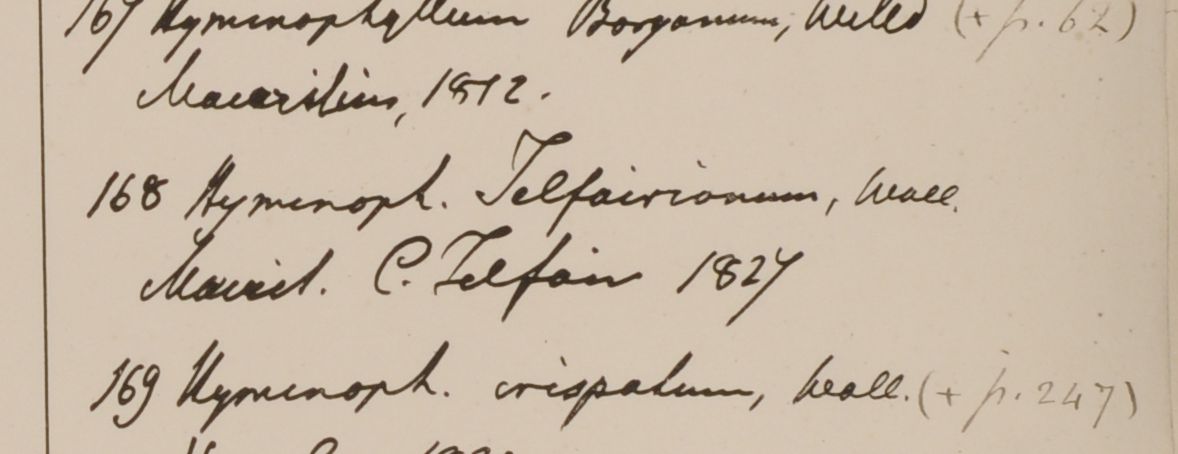 167 Hymenophyllum Boryanum, Willd (+ p. 62)
Mauritius, 1812.
168 Hymenoph. Telfairianum, Wall.
Maurit. C. Telfair 1827
169 Hymenoph. crispatum, Wall. (+ p. 247)